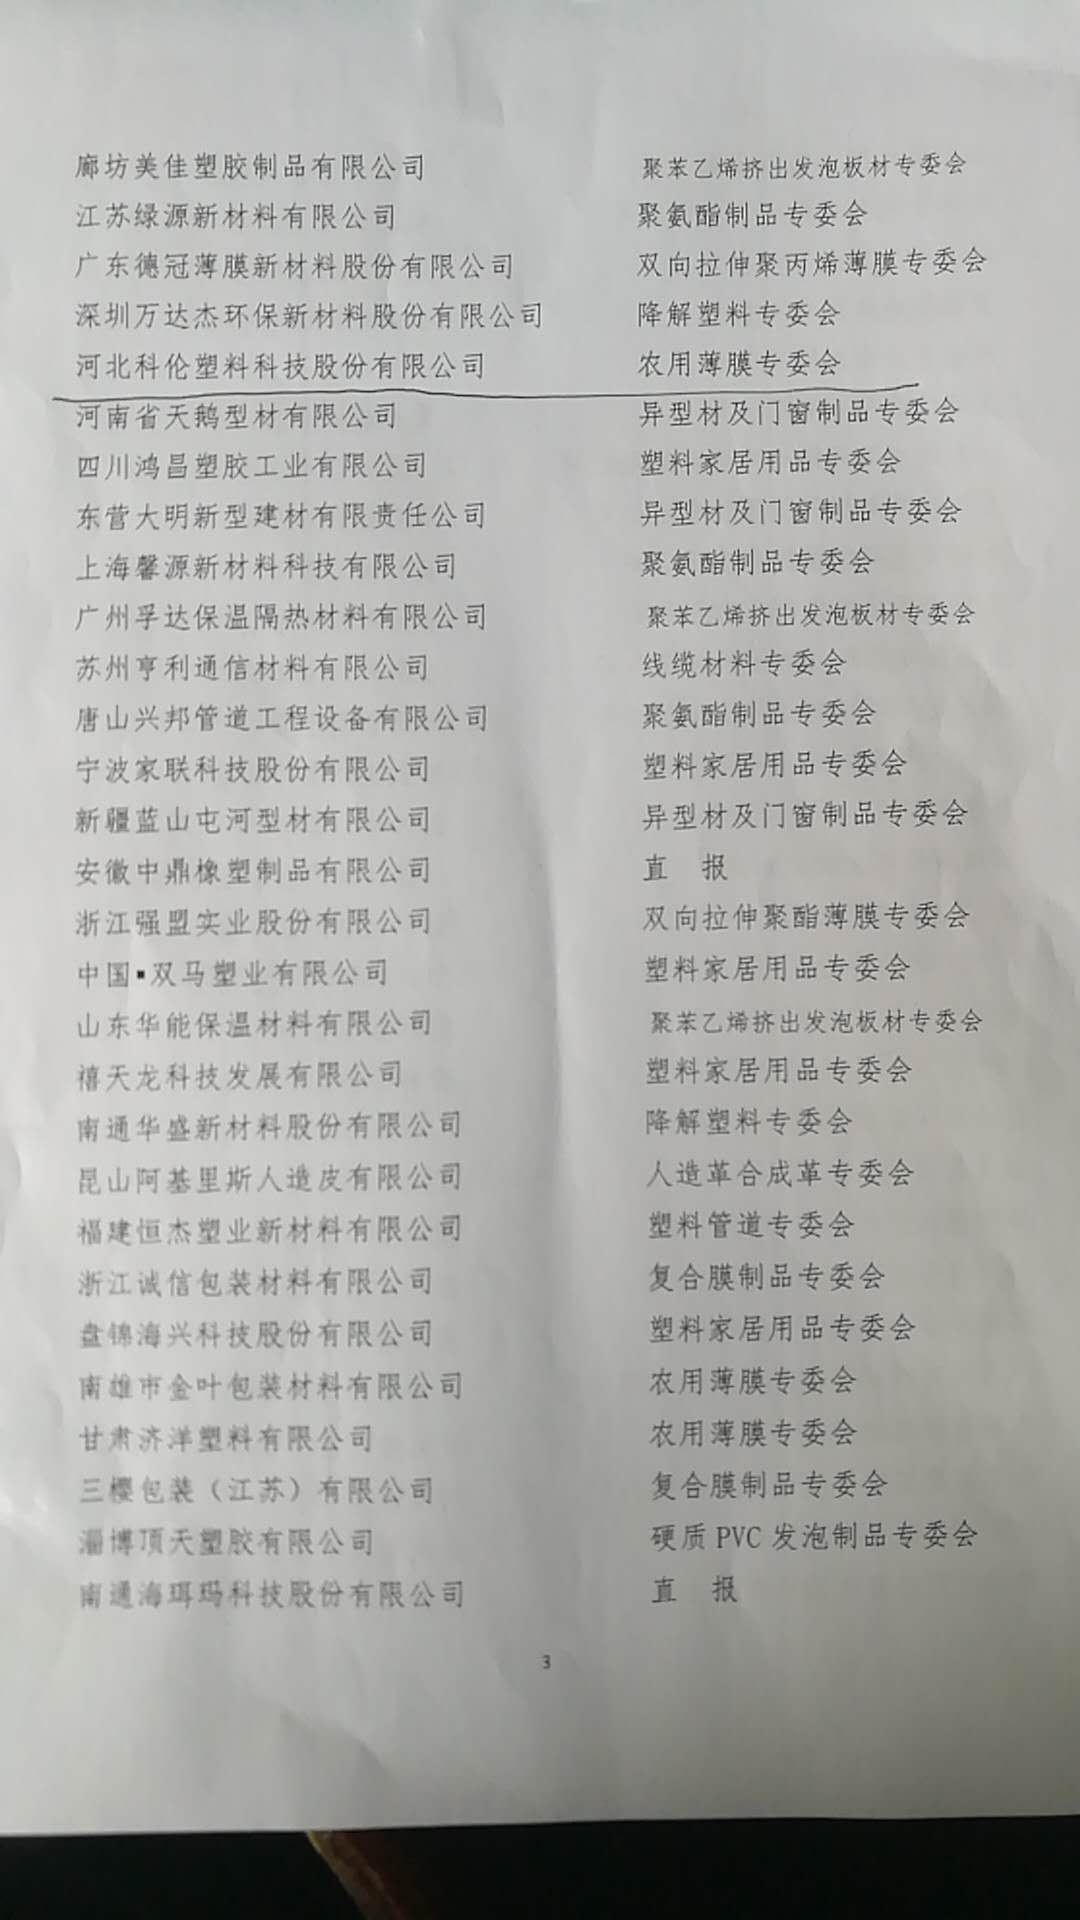 廊坊美佳塑胶制品有限公司 聚苯乙烯挤出发泡板材专委会
江苏绿源新材料有限公司 聚氨酯制品专委会
广东德冠薄膜新材料股份有限公司 双向拉伸聚丙烯薄膜专委会
深圳万达杰环保新材料股份有限公司 降解塑料专委会
河北科伦塑料科技股份有限公司 农用薄膜专委会
河南省天鹅型材有限公司 异型材及门窗制品专委会
四川鸿昌塑胶工业有限公司 塑料家居用品专委会
东营大明新型建材有限责任公司 异型材及门窗制品专委会
上海馨源新材料科技有限公司 聚氨酯制品专委会
广州孚达保温隔热材料有限公司 聚苯乙烯挤出发泡板材专委会
苏州亨利通信材料有限公司 线缆材料专委会
唐山兴邦管道工程设备有限公司 聚氨酯制品专委会
宁波家联科技股份有限公司 塑料家居用品专委会
新疆蓝山屯河型材有限公司 异型材及门窗制品专委会
安徽中鼎橡塑制品有限公司 直 报
浙江强盟实业股份有限公司 双向拉伸聚酯薄膜专委会
中国▪双马塑业有限公司 塑料家居用品专委会
山东华能保温材料有限公司 聚苯乙烯挤出发泡板材专委会
禧天龙科技发展有限公司 塑料家居用品专委会
南通华盛新材料股份有限公司 降解塑料专委会
昆山阿基里斯人造皮有限公司 人造革合成革专委会
福建恒杰塑业新材料有限公司 塑料管道专委会
浙江诚信包装材料有限公司 复合膜制品专委会
盘锦海兴科技股份有限公司 塑料家居用品专委会
南雄市金叶包装材料有限公司 农用薄膜专委会
甘肃济洋塑料有限公司 农用薄膜专委会
三樱包装（江苏）有限公司 复合膜制品专委会
淄博顶天塑胶有限公司 硬质PVC发泡制品专委会
南通海珥玛科技股份有限公司 直 报
3